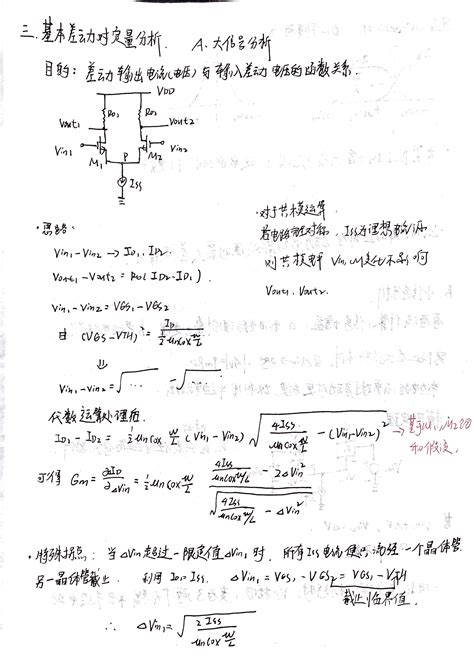 三. 基本差动对定量分析. A. 大信号分析
目的: 差动输出电流(电压)与输入差动电压的函数关系.
VDD
RD1 RD2
Vout1 Vout2
Vin1 M1 P M2 Vin2
ISS
·对于共模运算
若电路完全对称, ISS为理想电流源
则共模电平 Vin,CM变化不影响
Vout1. Vout2.
·思路:
Vin1-Vin2 → ID1, ID2
Vout1-Vout2 = RD(ID2-ID1)
Vin1-Vin2 = VGS1-VGS2
由 (VGS-VTH)² = ID / (½ μnCox W/L)
⇓
Vin1-Vin2 = √… - √…
⇓
代数运算处理后.
ID1-ID2 = ½ μnCox W/L (Vin1-Vin2) √(4ISS / (μnCox W/L) - (Vin1-Vin2)²) → 基于M1, M2饱
和假设.
可得 Gm = ∂ID/∂ΔVin = ½ μnCox W/L (4ISS / (μnCox W/L) - 2ΔVin²) / √(4ISS / (μnCox W/L) - ΔVin²)
·特殊拐点: 当ΔVin超过一限定值ΔVin1时, 所有ISS电流便只流经一个晶体管
另一晶体管截止. 利用ID1=ISS. ΔVin1 = VGS1-VGS2 = VGS1-VTH
截止临界值.
∴ ΔVin1 = √(2ISS / (μnCox W/L))